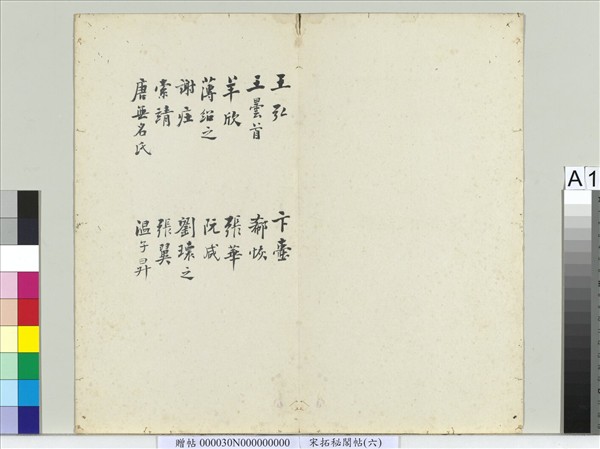 王弘
王曇首
羊欣
薄紹之
謝莊
索靖
唐無名氏
卞壼
郗恢
張華
阮咸
劉瓌之
張翼
温子昇
A 1
贈帖 000030N000000000 宋拓秘閣帖(六)